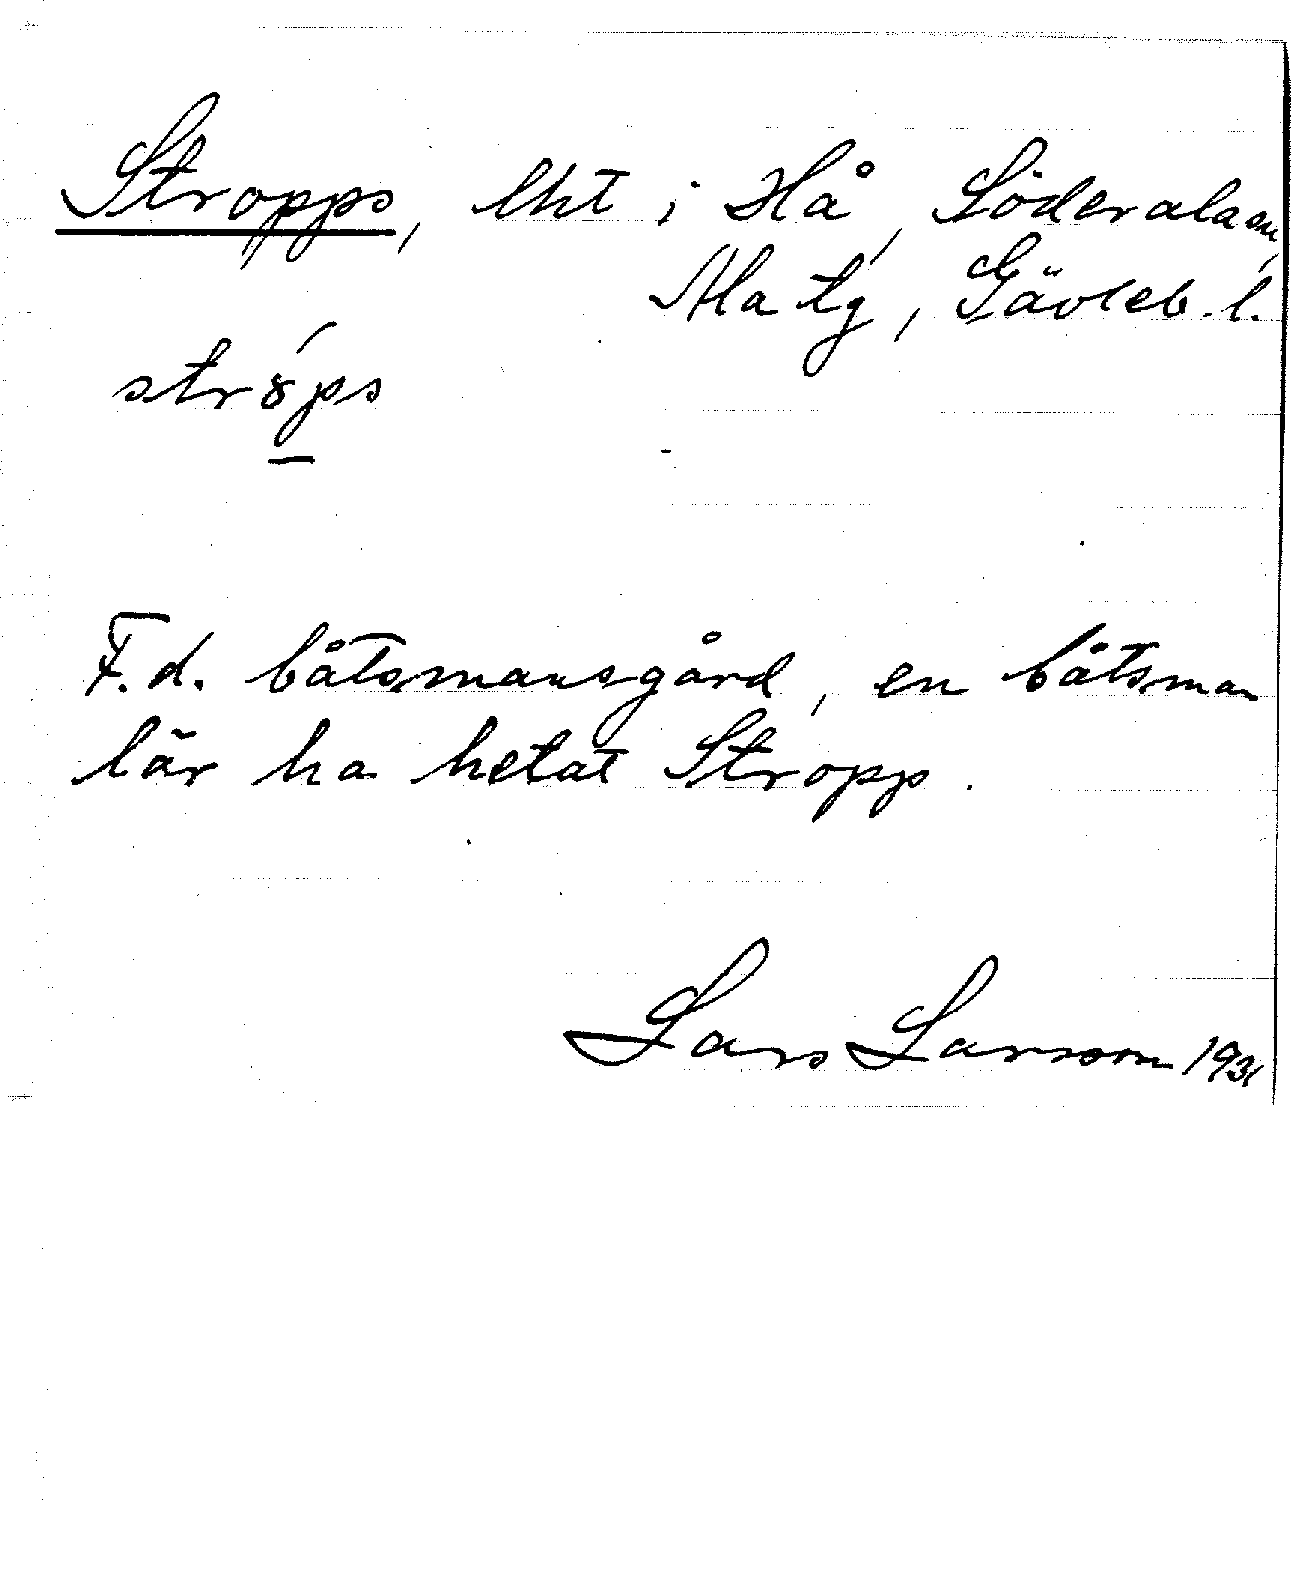 Stropps, lht i Hå, Söderala sn,
Ala tg, Gävleb. l.
stróps
F.d. båtsmansgård, en båtsman
lär ha hetat Stropp.
Lars Larsson 1931